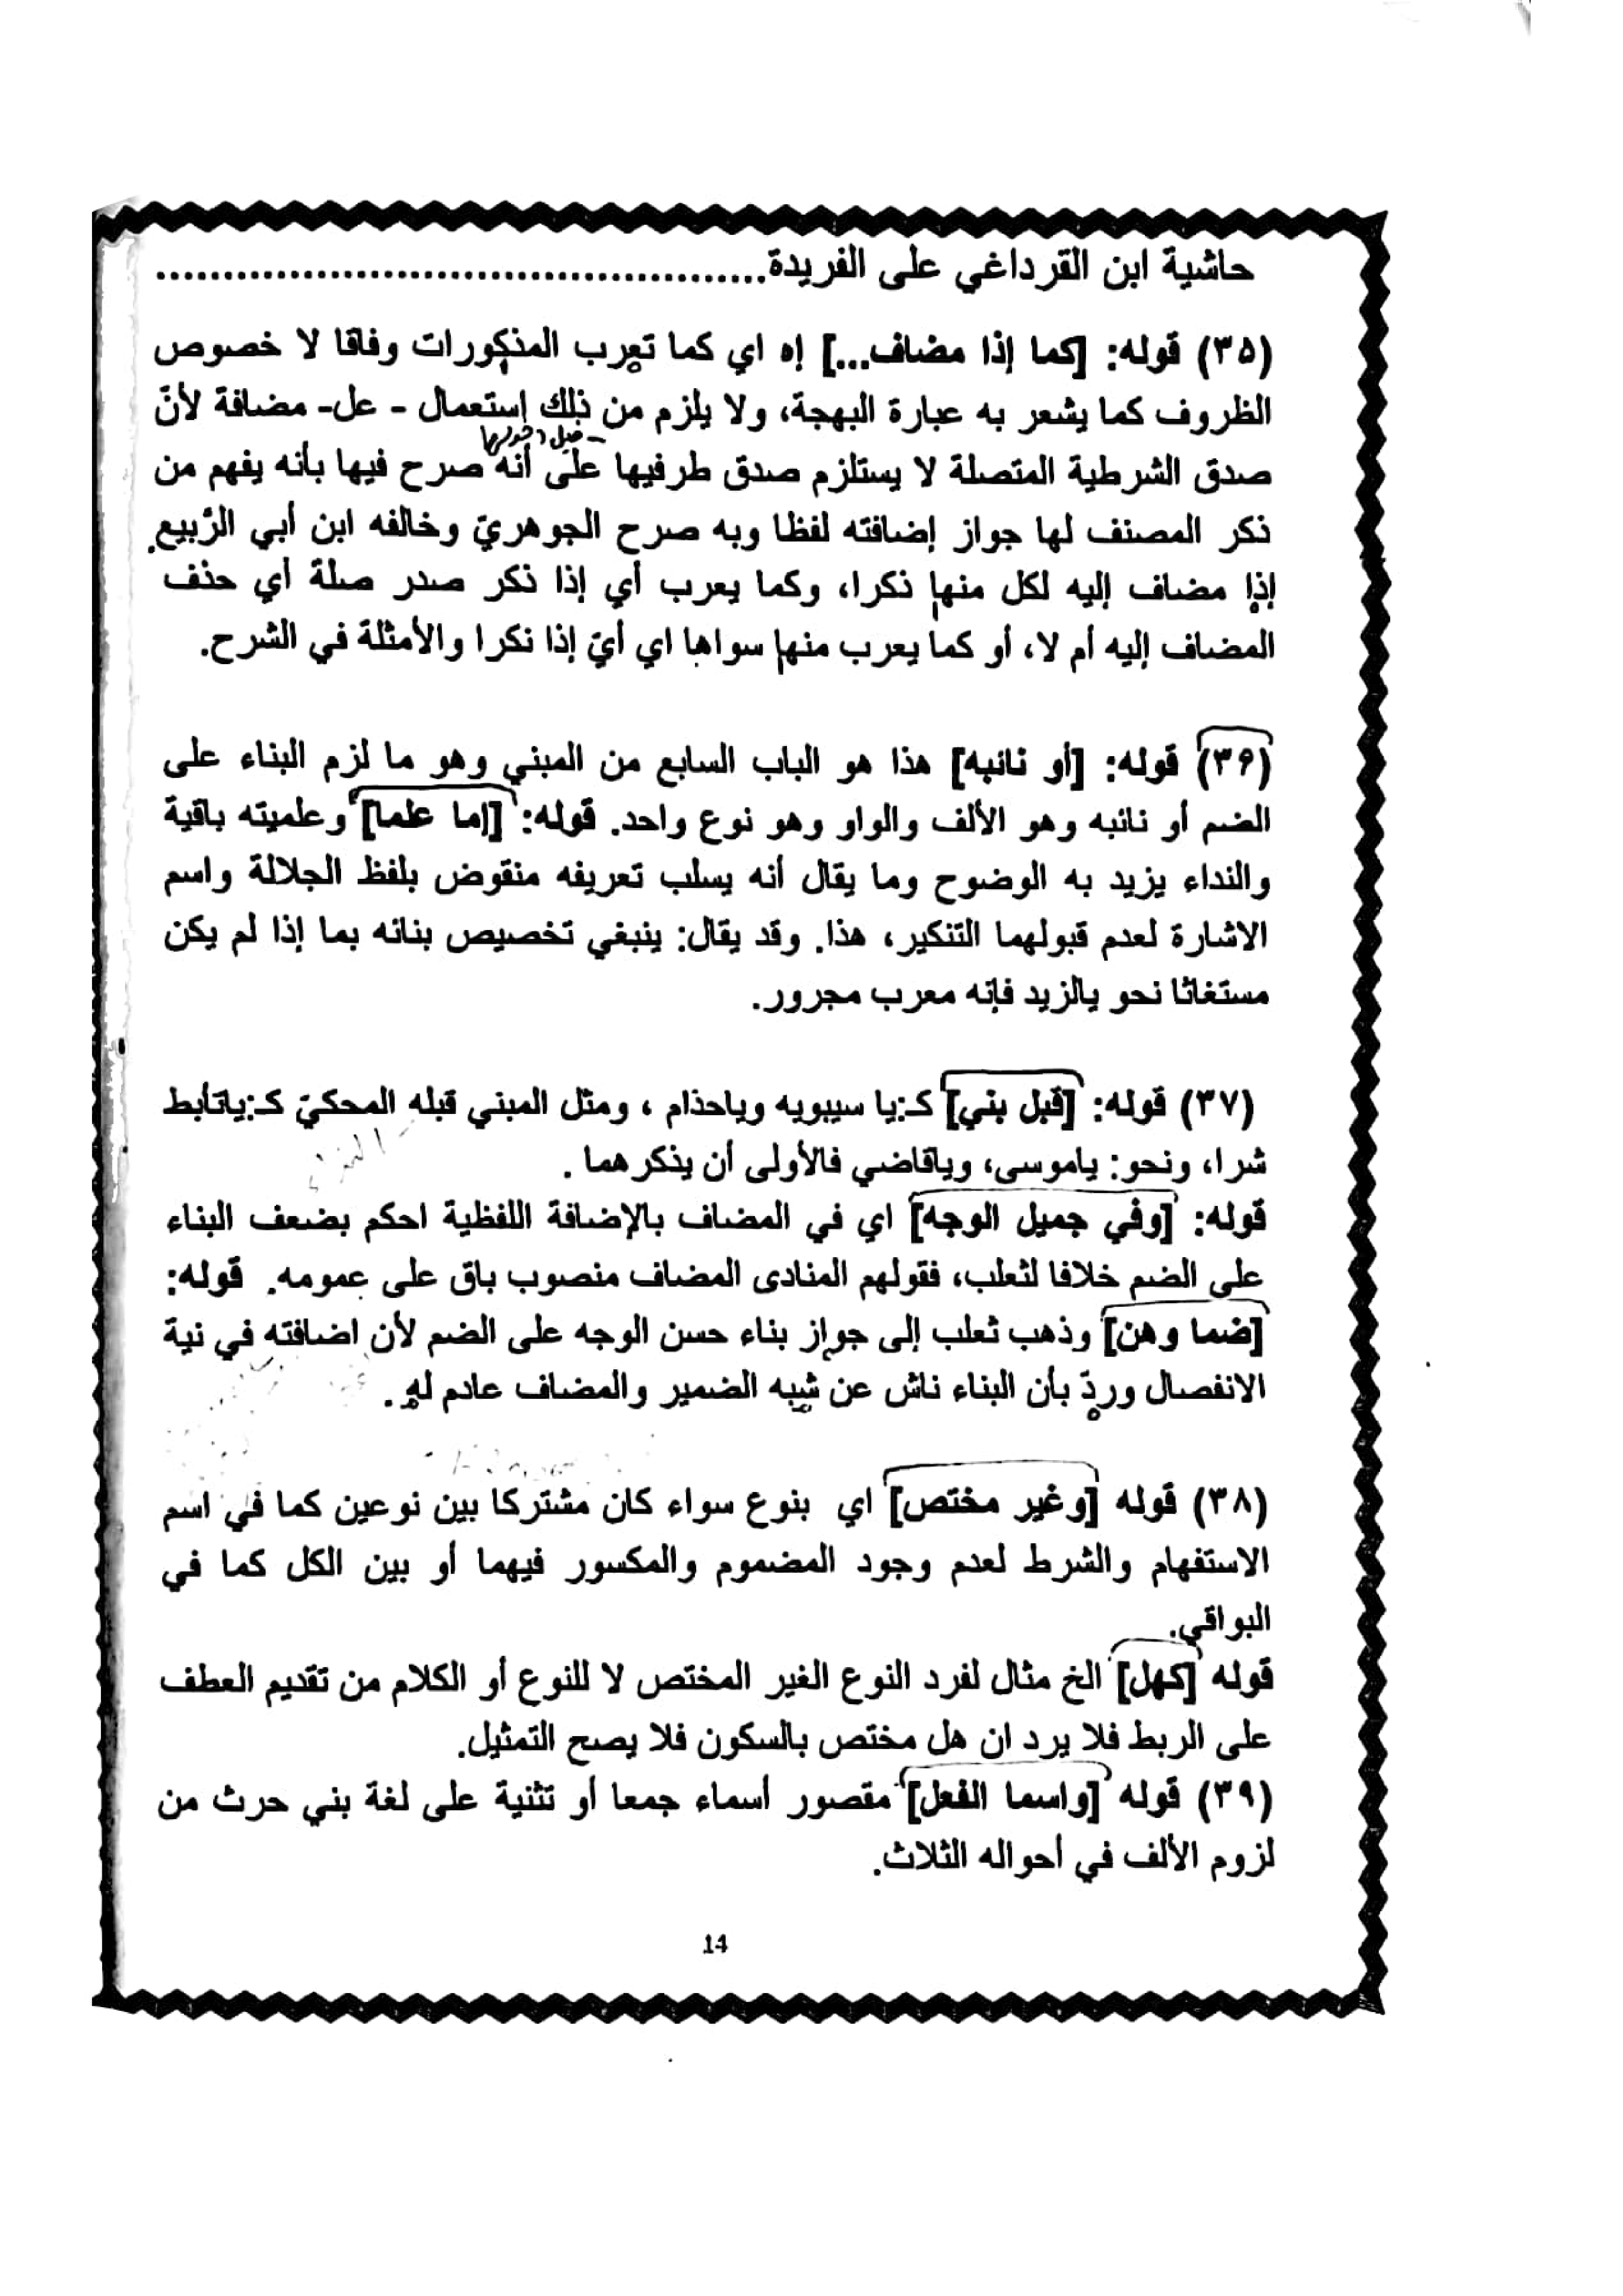 حاشية ابن القرداغي على الفريدة..............................................
(٣٥) قوله: [كما إذا مضاف...] إه اي كما تعرب المذكورات وفاقا لا خصوص
الظروف كما يشعر به عبارة البهجة، ولا يلزم من ذلك إستعمال - عل- مضافة لأنّ
صدق الشرطية المتصلة لا يستلزم صدق طرفيها على أنه صرح فيها بأنه يفهم من
ذكر المصنف لها جواز إضافته لفظا وبه صرح الجوهريّ وخالفه ابن أبي الرّبيع.
إذا مضاف إليه لكل منها ذكرا، وكما يعرب أي إذا ذكر صدر صلة أي حذف
المضاف إليه أم لا، أو كما يعرب منها سواها اي أيّ إذا نكرا والأمثلة في الشرح.
(٣۶) قوله: [أو نائبه] هذا هو الباب السابع من المبني وهو ما لزم البناء على
الضم أو نائبه وهو الألف والواو وهو نوع واحد. قوله: [إما علما] وعلميته باقية
والنداء يزيد به الوضوح وما يقال أنه يسلب تعريفه منقوض بلفظ الجلالة واسم
الاشارة لعدم قبولهما التنكير، هذا. وقد يقال: ينبغي تخصيص بنائه بما إذا لم يكن
مستغاثا نحو يالزيد فإنه معرب مجرور.
(٣٧) قوله: [قبل بني] كـ:يا سيبويه وياحذام ، ومثل المبني قبله المحكيّ كـ:ياتأبط
شرا، ونحو: ياموسى، وياقاضي فالأولى أن يذكرهما .
قوله: [وفي جميل الوجه] اي في المضاف بالإضافة اللفظية احكم بضعف البناء
على الضم خلافا لثعلب، فقولهم المنادى المضاف منصوب باق على عمومه. قوله:
[ضما وهن] وذهب ثعلب إلى جواز بناء حسن الوجه على الضم لأن اضافته في نية
الانفصال وردّ بأن البناء ناش عن شبه الضمير والمضاف عادم له .
(٣٨) قوله [وغير مختص] اي بنوع سواء كان مشتركا بين نوعين كما في اسم
الاستفهام والشرط لعدم وجود المضموم والمكسور فيهما أو بين الكل كما في
البواقي.
قوله [كهل] الخ مثال لفرد النوع الغير المختص لا للنوع أو الكلام من تقديم العطف
على الربط فلا يرد ان هل مختص بالسكون فلا يصح التمثيل.
(٣٩) قوله [واسما الفعل] مقصور أسماء جمعا أو تثنية على لغة بني حرث من
لزوم الألف في أحواله الثلاث.
14